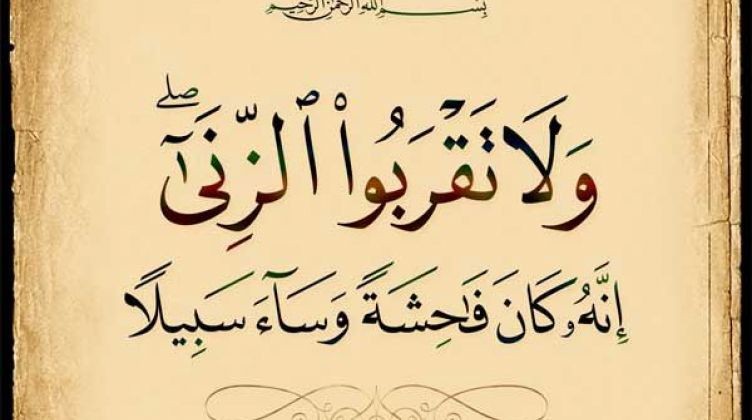 بِسْمِ اللهِ الرَّحْمٰنِ الرَّحِيْمِ
وَلَا تَقْرَبُوا۟ ٱلزِّنَىٰٓ ۖ
إِنَّهُۥ كَانَ فَـٰحِشَةً وَسَآءَ سَبِيلًا